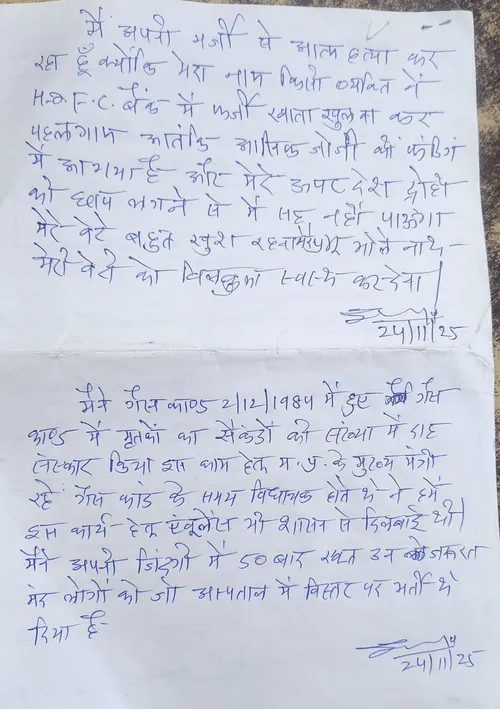 मैं अपनी मर्जी से आत्म हत्या कर
रहा हूँ क्योंकि मेरा नाम किसी व्यक्ति ने
H.D.F.C. बैंक में फर्जी खाता खुलवा कर
पहलगाम आतंकि आसिफ जोजी की फंडिंग
में आ गया है और मेरे ऊपर देश द्रोही
की छाप लगने से मैं सह नहीं पाऊंगा
मेरे बेटे बहुत खुश रहना भोले नाथ
मेरी बेटी को बिलकुल स्वस्थ कर देना
24/11/25
मैने गैस काण्ड 2/12/1984 में हुए गैस
काण्ड में मृतकों का सैकडों की संख्या में दाह
संस्कार किया इस काम हेतु म.प्र. के मुख्य मंत्री
रहे गैस कांड के समय विधायक होते थे ने हमें
इस कार्य हेतू एंबूलेंस भी शासन से दिलबाई थी।
मैंने अपनी जिंदगी में 50 बार रक्त उन जरूरत
मंद लोगों को जो अस्पताल में बिस्तर पर भर्ती थे
दिया है
24/11/25